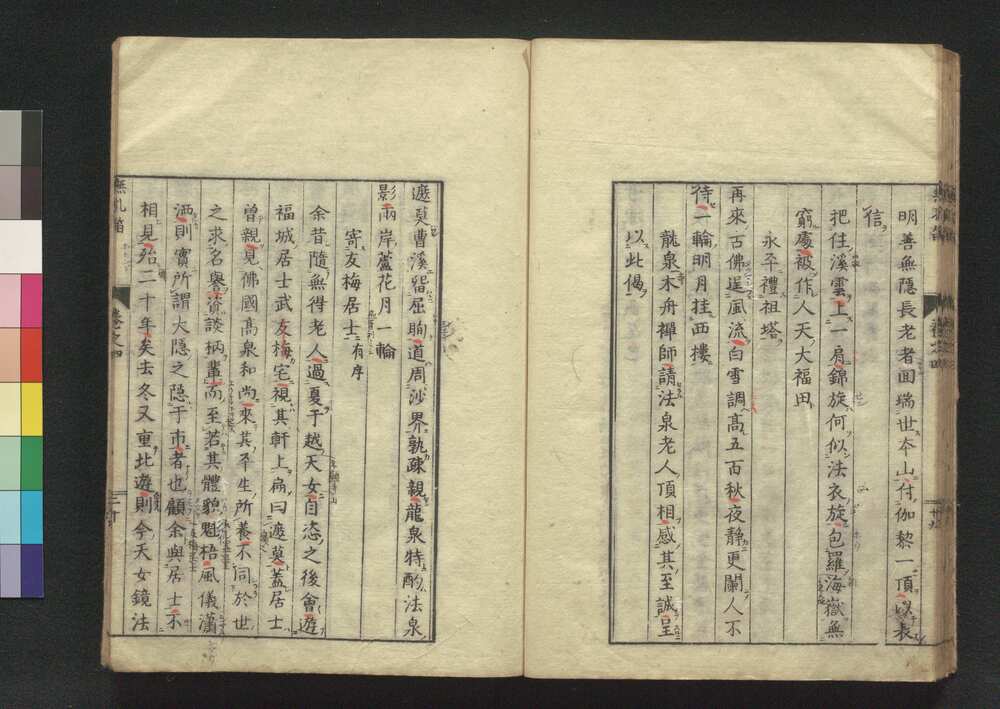 明善無隱長老者囬端世夲山付伽黎一頂以表
信
把住溪雲上一肩錦旋何似法衣旋包羅海嶽無
窮處被作人天大福田
永平禮祖塔
再來古佛逞風流白雪調高五百秋夜静更闌人不
待一輪明月挂西樓
龍泉木舟禪師請法泉老人頂相感其至誠呈
以此偈
遮莫曹溪屈眴道周沙界孰疎親龍泉特酌法泉
影兩岸蘆花月一輪
寄友梅居士有序
余昔隨無得老人過夏于越天女自恣之後會遊
福城居士武友梅宅視其軒上扁曰遮莫蓋居士
曾親見佛國高泉和尚來其平生所養不同於世
之求名譽資談柄輩而至若其體貌魁梧風儀瀟
洒則實所謂大隱之隱于市者也顧余與居士不
相見殆二十年矣去冬又重北遊則今天女鏡法
無孔笛
卷之四
二十
卷之四
十九